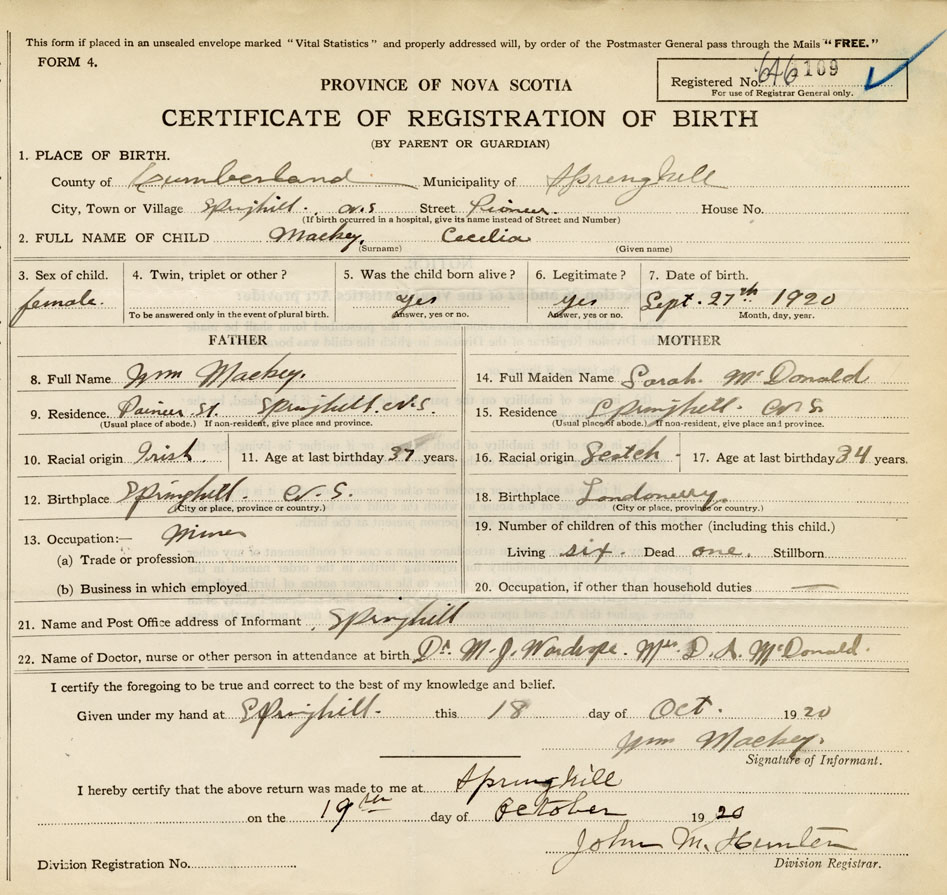 This form if placed in an unsealed envelope marked "Vital Statistics" and properly addressed will, by order of the Postmaster General pass through the Mails "FREE."
FORM 4.
Registered No. 646 109
For use of Registrar General only.
PROVINCE OF NOVA SCOTIA
CERTIFICATE OF REGISTRATION OF BIRTH
(BY PARENT OR GUARDIAN)
1. PLACE OF BIRTH.
County of Cumberland Municipality of Springhill
City, Town or Village Springhill. N.S Street Pioneer. House No.
(If birth occurred in a hospital, give its name instead of Street and Number)
2. FULL NAME OF CHILD Mackey, Cecelia
(Surname) (Given name)
3. Sex of child. 4. Twin, triplet or other? 5. Was the child born alive? 6. Legitimate? 7. Date of birth.
female. Yes Yes Sept. 27th 1920
To be answered only in the event of plural birth. Answer, yes or no. Answer, yes or no. Month, day, year.
FATHER MOTHER
8. Full Name Wm Mackey. 14. Full Maiden Name Sarah. McDonald
9. Residence. St. Springhill. N.S. 15. Residence Springhill. N.S.
(Usual place of abode.) If non-resident, give place and province. (Usual place of abode.) If non-resident, give place and province.
10. Racial origin Irish. 11. Age at last birthday 37 years. 16. Racial origin Scotch 17. Age at last birthday 34 years.
12. Birthplace Springhill. N.S. 18. Birthplace Londonerry.
(City or place, province or country.) (City or place, province or country.)
13. Occupation:— Miner 19. Number of children of this mother (including this child.)
(a) Trade or profession Living six. Dead one. Stillborn
(b) Business in which employed 20. Occupation, if other than household duties —
21. Name and Post Office address of Informant Springhill
22. Name of Doctor, nurse or other person in attendance at birth Dr. M. J. Wardrope. Mrs. D. A. McDonald.
I certify the foregoing to be true and correct to the best of my knowledge and belief.
Given under my hand at Springhill. this 18 day of Oct. 1920
Wm Mackey.
Signature of Informant.
I hereby certify that the above return was made to me at Springhill
on the 19th day of October 1920
John M. Hunter
Division Registration No. Division Registrar.